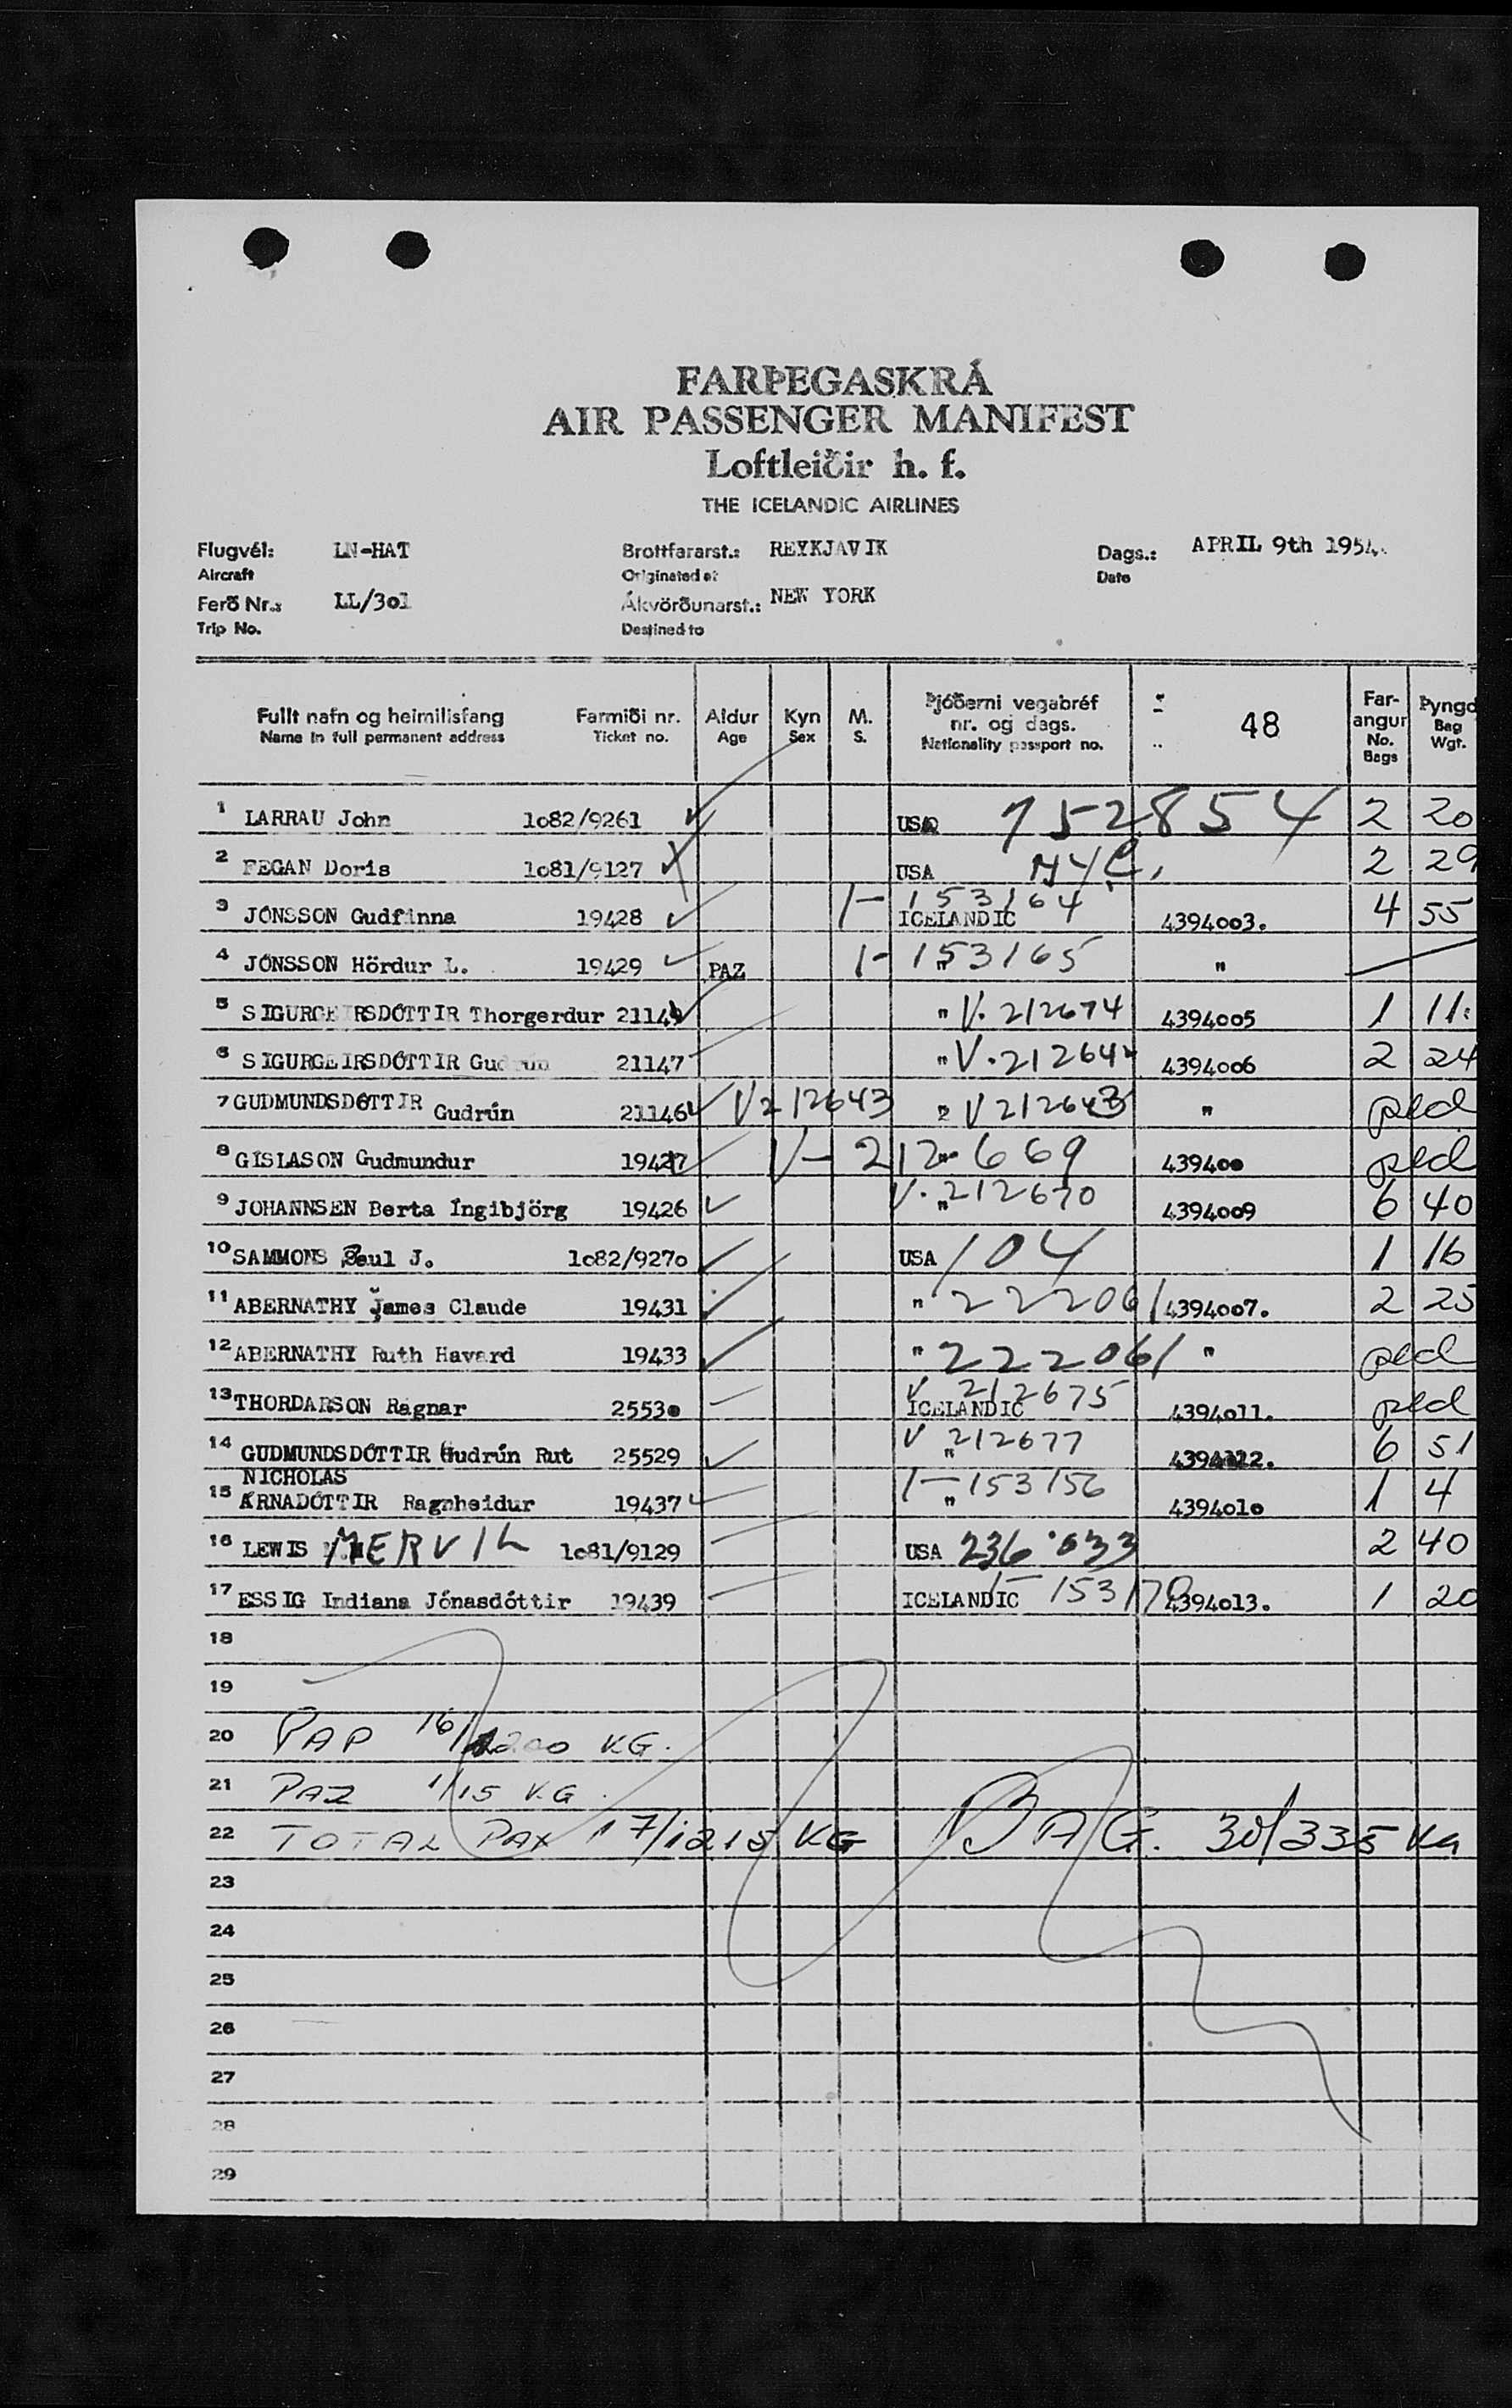 FARÞEGASKRÁ
AIR PASSENGER MANIFEST
Loftleiðir h. f.
THE ICELANDIC AIRLINES
Flugvél: LN-HAT Brottfararst.: REYKJAVIK Dags.: APRIL 9th 1954.
Aircraft Originated at Date
Ferð Nr.: LL/3o1 Ákvörðunarst.: NEW YORK
Trip No. Destined to
Fullt nafn og heimilisfang Farmiði nr. Aldur Kyn M. Þjóðerni vegabréf nr. og dags. 48 Farangur Þyngd
Name in full permanent address Ticket no. Age Sex S. Nationality passport no. No. Bags Bag Wgt.
1 LARRAU John 1o82/9261 USA 752854 2 20
2 FEGAN Doris 1o81/9127 USA NYC. 2 29
3 JÓNSSON Gudfinna 19428 I- 153164 ICELANDIC 4394oo3. 4 55
4 JÓNSSON Hördur L. 19429 PAZ I- 153165 " "
5 SIGURGEIRSDÓTTIR Thorgerdur " V. 212674 4394oo5 1 11.
6 SIGURGEIRSDÓTTIR Gudrún 21147 " V. 212642 4394oo6 2 24
7 GUDMUNDSDÓTTIR Gudrún 21146 V212643 " V212643 " pld
8 GÍSLASON Gudmundur 19427 V- 212669 " 4394oo pld
9 JOHANNSEN Berta Íngibjörg 19426 V. 212670 " 4394oo9 6 40
10 SAMMONS Paul J. 1o82/927o USA 104 1 16
11 ABERNATHY James Claude 19431 " 222061 4394oo7. 2 25
12 ABERNATHY Ruth Havard 19433 " 222061 " pld
13 THORDARSON Ragnar 2553o V 212675 ICELANDIC 4394o11. pld
14 GUDMUNDSDÓTTIR Gudrún Rut 25529 V 212677 " 4394o12. 6 51
NICHOLAS
15 ÁRNADÓTTIR Ragnheidur 19437 I- 153156 " 4394o1o 1 4
16 LEWIS MERVIL 1o81/9129 USA 236033 2 40
17 ESSIG Indiana Jónasdóttir 19439 ICELANDIC I- 153170 4394o13. 1 20
18
19
20 PAP 16/1200 KG.
21 PAZ 1/15 KG.
22 TOTAL PAX 17/1215 KG BAG. 30/335 KG
23
24
25
26
27
28
29